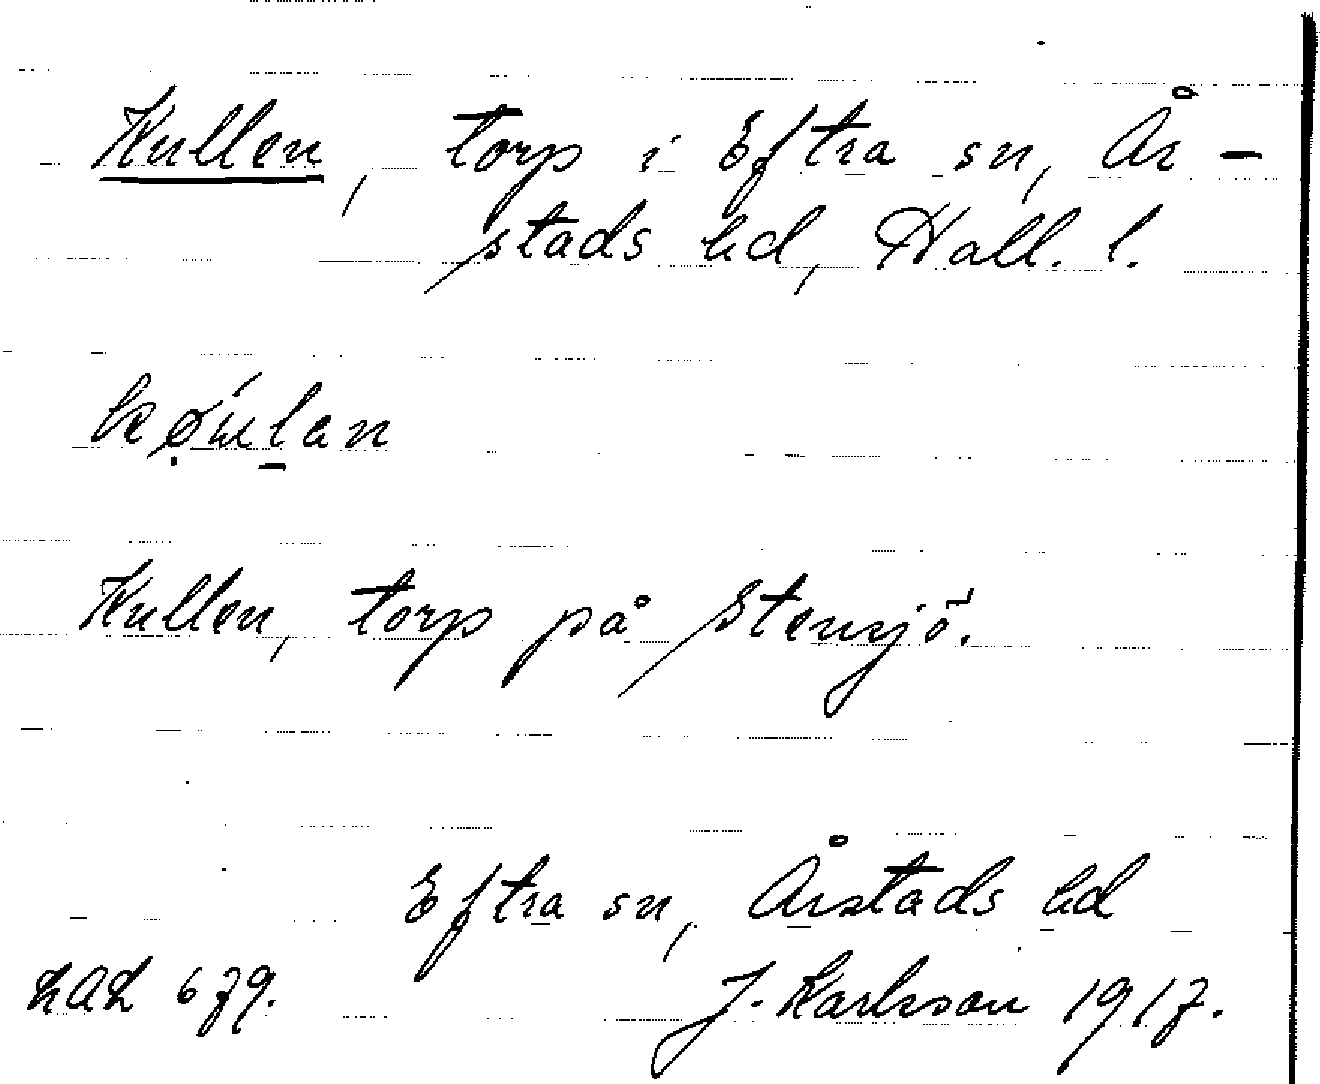 Kullen, torp i Eftra sn, År-
stads hd, Hall. l.
Kullen, torp på Stensjö.
Eftra sn, Årstads hd
LAL 679. J. Karlsson 1917.